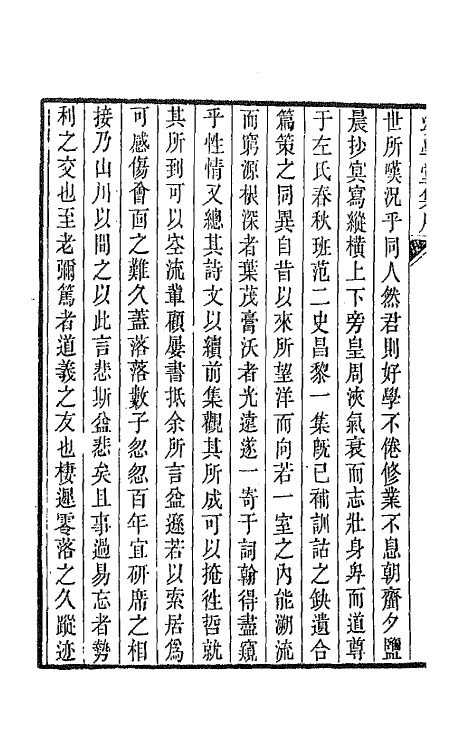 世所嘆況乎同人然君則好學不倦修業不息朝齏夕鹽
晨抄寞寫縱橫上下旁皇周浹氣衰而志壯身𤰞而道尊
于左氏春秋班范二史昌黎一集旣已補訓詁之鈌遺合
篇策之同異自昔以來所望洋而向若一室之內能溯流
而窮源根深者葉茂膏沃者光遠遂一寄于詞翰得盡窺
乎性情又總其詩文以續前集觀其所成可以掩徃哲就
其所到可以空流輩顧屢書抵余所言益遜若以索居爲
可感傷會面之難久蓋落落數子忽忽百年宜硏席之相
接乃山川以間之以此言悲斯益悲矣且事過易忘者勢
利之交也至老彌篤者道義之友也棲遲零落之久蹤迹